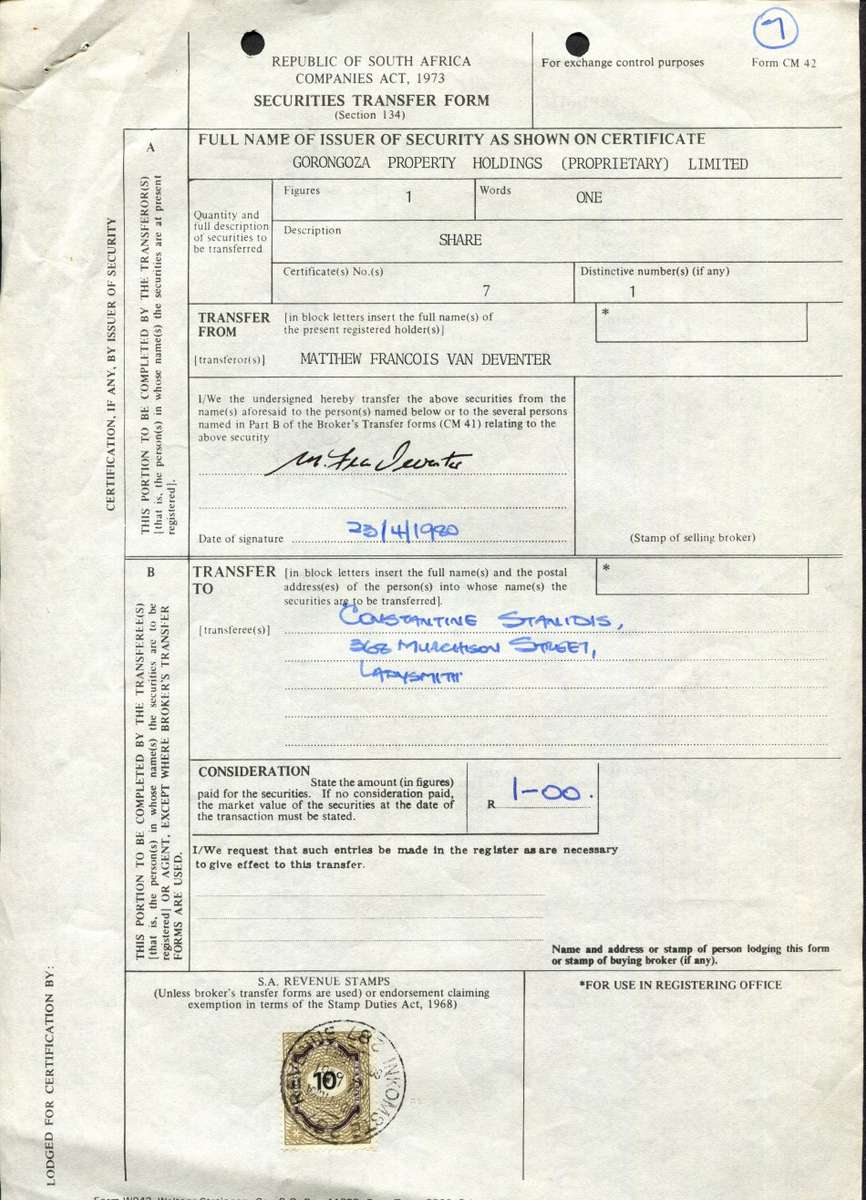 7
REPUBLIC OF SOUTH AFRICA
COMPANIES ACT, 1973
SECURITIES TRANSFER FORM
(Section 134)
For exchange control purposes
Form CM 42
CERTIFICATION, IF ANY, BY ISSUER OF SECURITY
A
THIS PORTION TO BE COMPLETED BY THE TRANSFEROR(S)
[that is, the person(s) in whose name(s) the securities are at present
registered].
FULL NAME OF ISSUER OF SECURITY AS SHOWN ON CERTIFICATE
GORONGOZA PROPERTY HOLDINGS (PROPRIETARY) LIMITED
Quantity and
full description
of securities to
be transferred
Figures
1
Words
ONE
Description
SHARE
Certificate(s) No.(s)
7
Distinctive number(s) (if any)
1
TRANSFER
FROM
[in block letters insert the full name(s) of
the present registered holder(s)]
*
[transferor(s)]
MATTHEW FRANCOIS VAN DEVENTER
I/We the undersigned hereby transfer the above securities from the
name(s) aforesaid to the person(s) named below or to the several persons
named in Part B of the Broker's Transfer forms (CM 41) relating to the
above security
Date of signature 23/4/1980
(Stamp of selling broker)
B
THIS PORTION TO BE COMPLETED BY THE TRANSFEREE(S)
[that is, the person(s) in whose name(s) the securities are to be
registered] OR AGENT, EXCEPT WHERE BROKER'S TRANSFER
FORMS ARE USED.
TRANSFER
TO
[in block letters insert the full name(s) and the postal
address(es) of the person(s) into whose name(s) the
securities are to be transferred].
*
[transferee(s)]
CONSTANTINE STANIDIS,
368 MURCHISON STREET,
LADYSMITH
CONSIDERATION
State the amount (in figures)
paid for the securities. If no consideration paid,
the market value of the securities at the date of
the transaction must be stated.
R 1-00.
I/We request that such entries be made in the register as are necessary
to give effect to this transfer.
Name and address or stamp of person lodging this form
or stamp of buying broker (if any).
LODGED FOR CERTIFICATION BY:
S.A. REVENUE STAMPS
(Unless broker's transfer forms are used) or endorsement claiming
exemption in terms of the Stamp Duties Act, 1968)
*FOR USE IN REGISTERING OFFICE
10